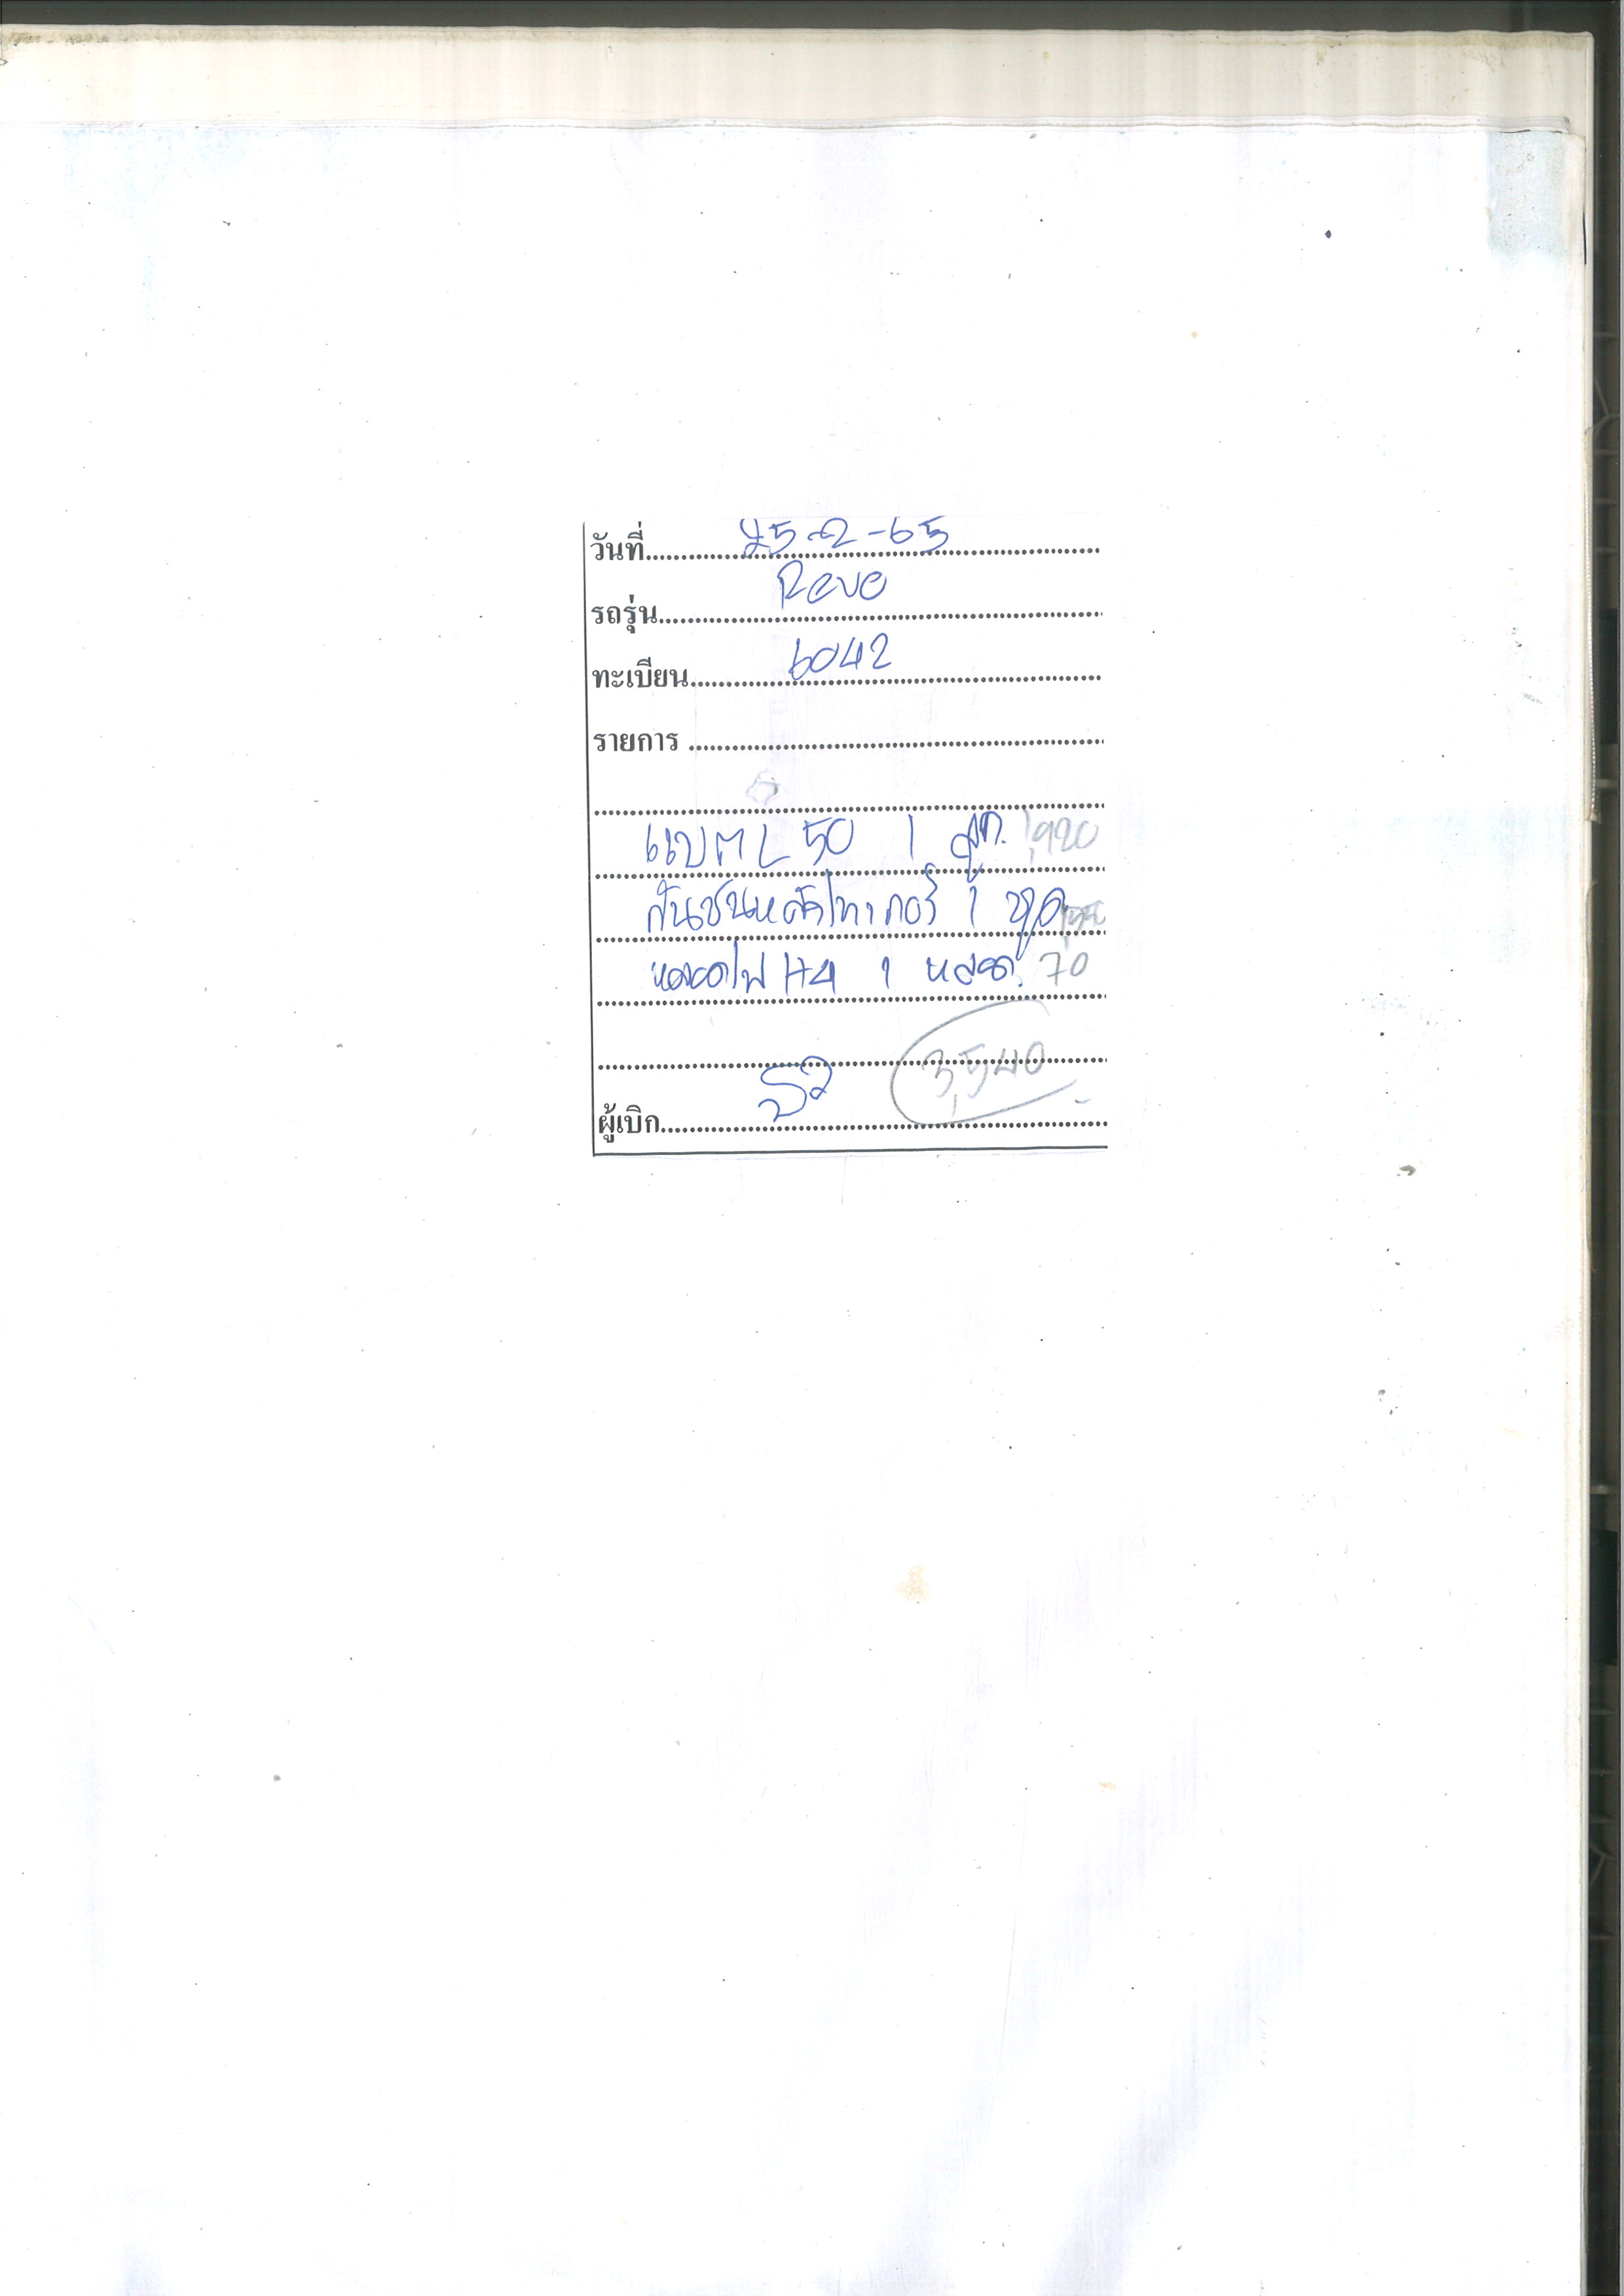 วันที่ 25-2-65
รถรุ่น Revo
ทะเบียน 6042
รายการ
แบต L 50 1 ลูก 1,920
กันชนหลังไทเกอร์ 1 ชุด
หลอดไฟ H4 1 หลอด 70
3,540
ผู้เบิก